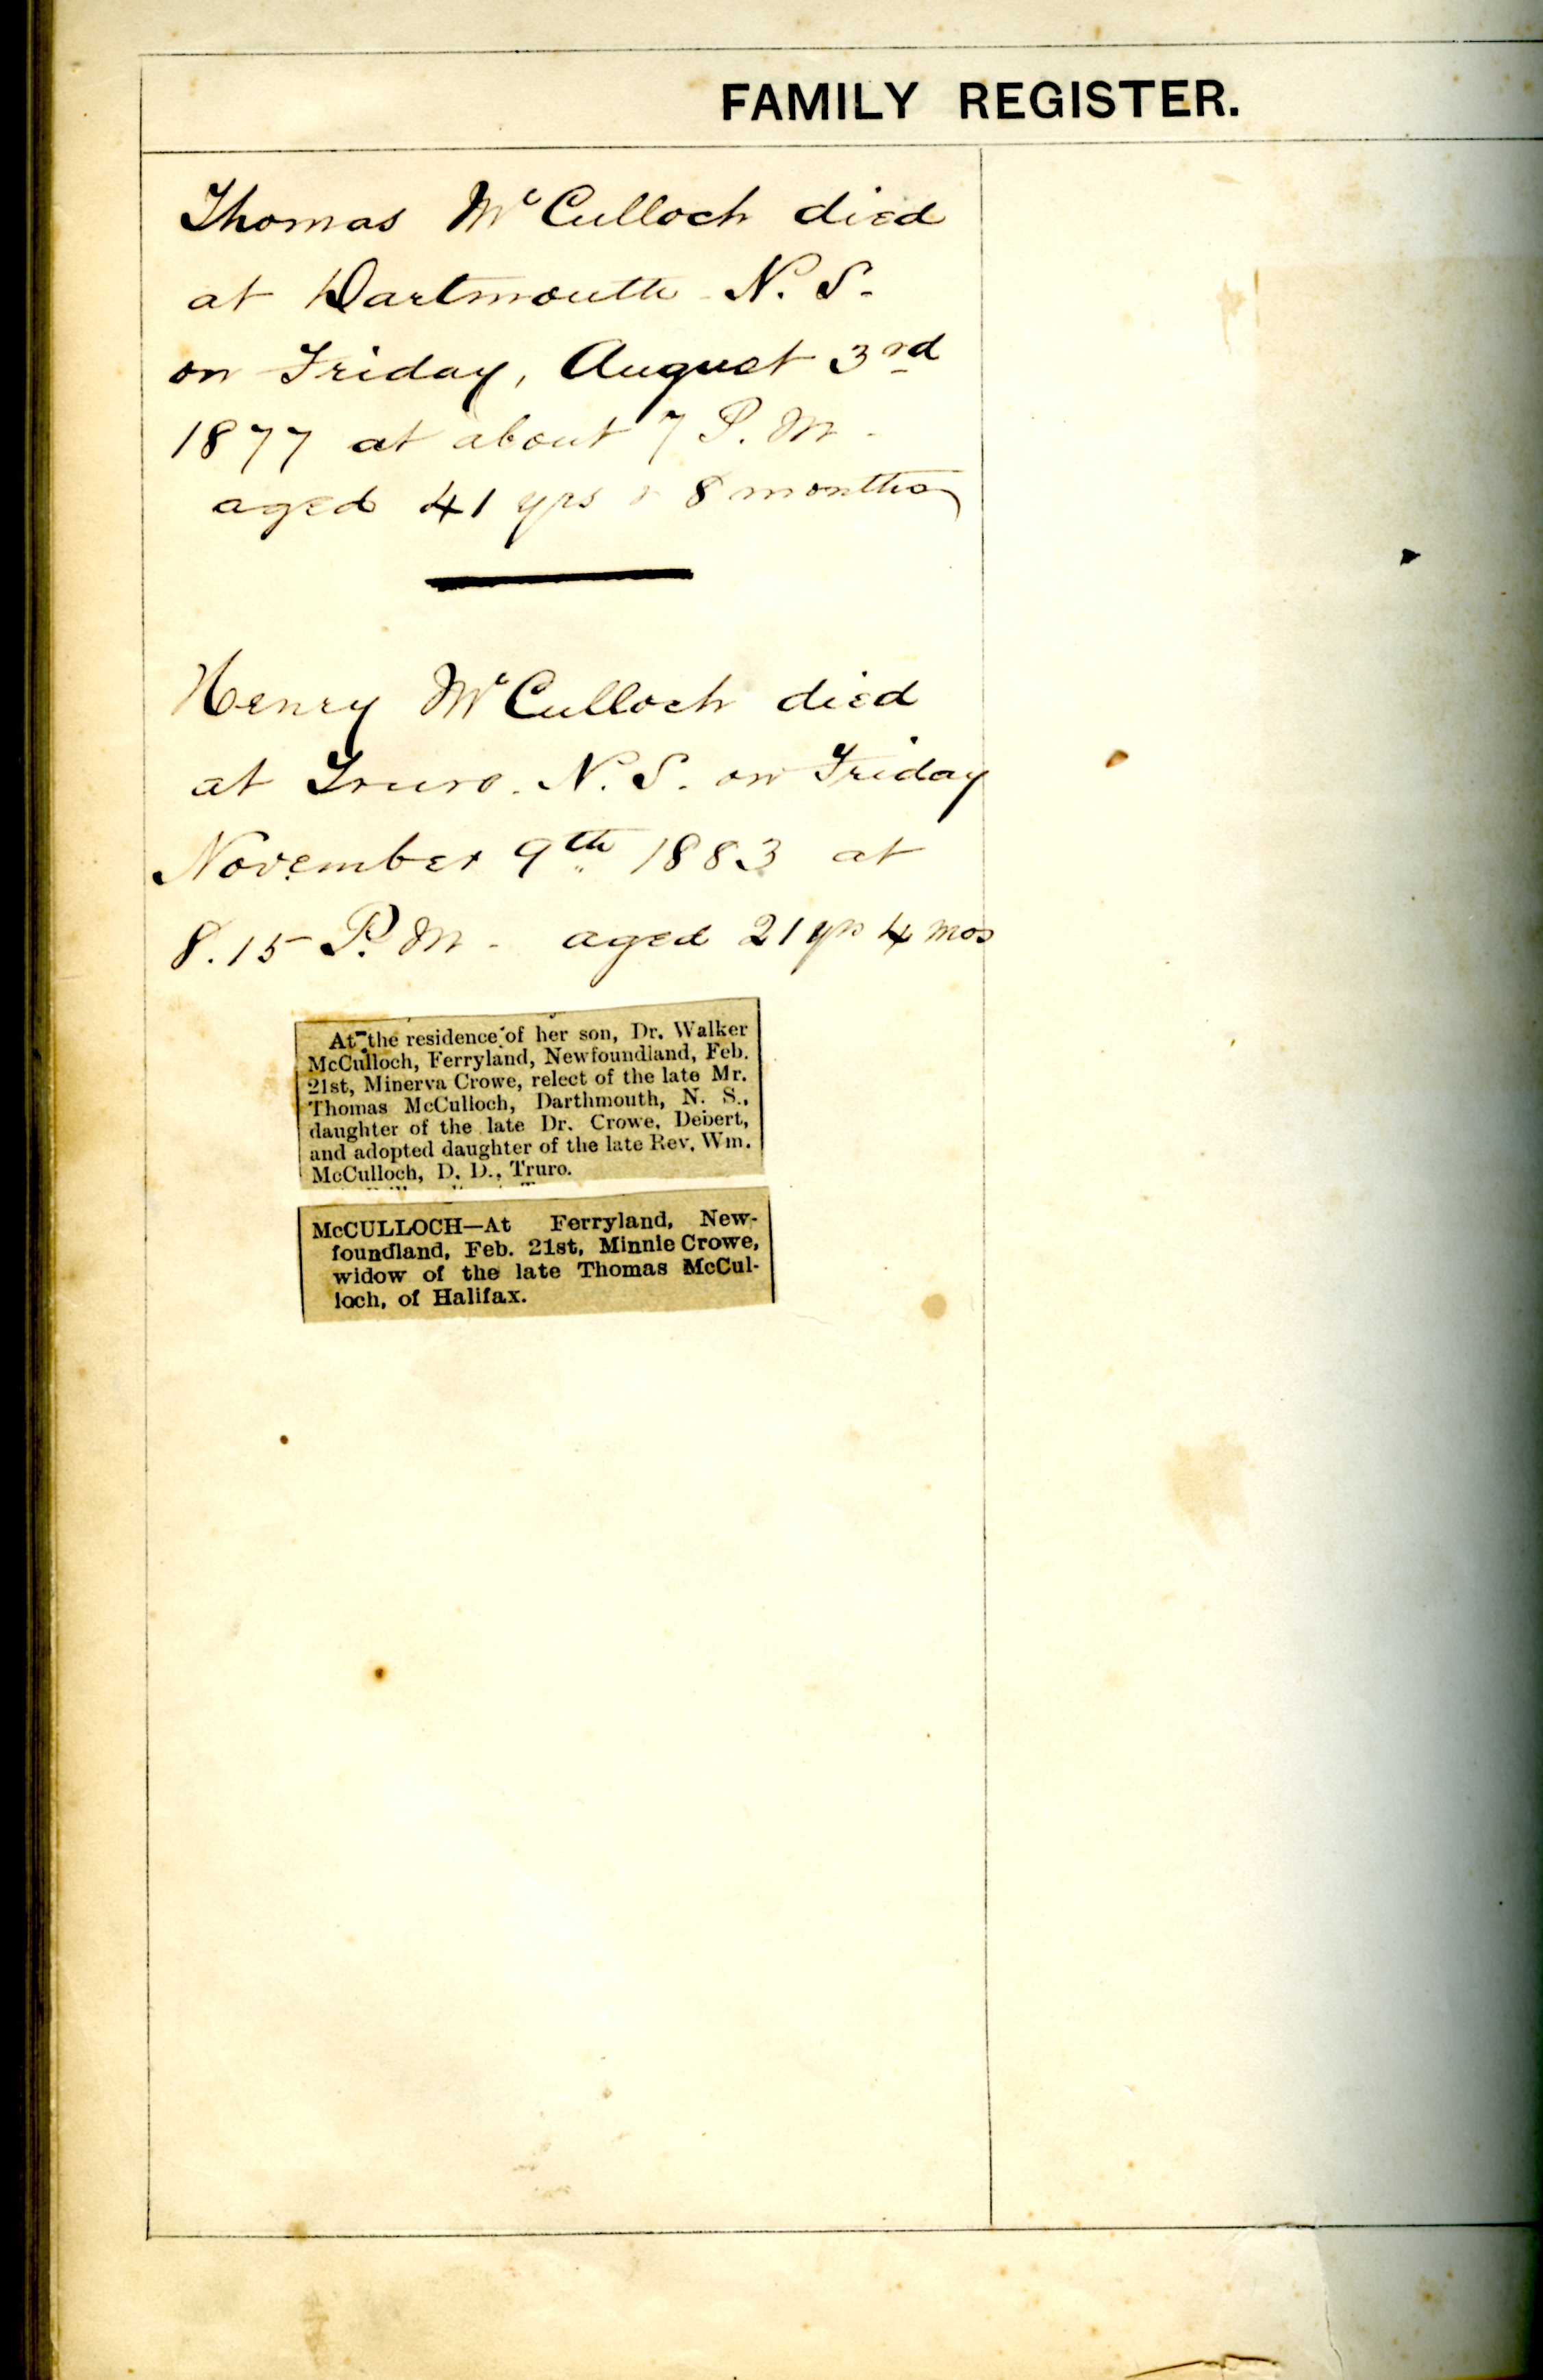 FAMILY REGISTER.
Thomas McCulloch died
at Dartmouth N. S.
on Friday, August 3rd
1877 at about 7 P. M.
aged 41 yrs & 8 months
Henry McCulloch died
at Truro. N. S. on Friday
November 9th 1883 at
8.15 P. M. aged 21 yrs 4 mos
At the residence of her son, Dr. Walker
McCulloch, Ferryland, Newfoundland, Feb.
21st, Minerva Crowe, relect of the late Mr.
Thomas McCulloch, Darthmouth, N. S.,
daughter of the late Dr. Crowe, Debert,
and adopted daughter of the late Rev. Wm.
McCulloch, D. D., Truro.
McCULLOCH—At Ferryland, New-
foundland, Feb. 21st, Minnie Crowe,
widow of the late Thomas McCul-
loch, of Halifax.